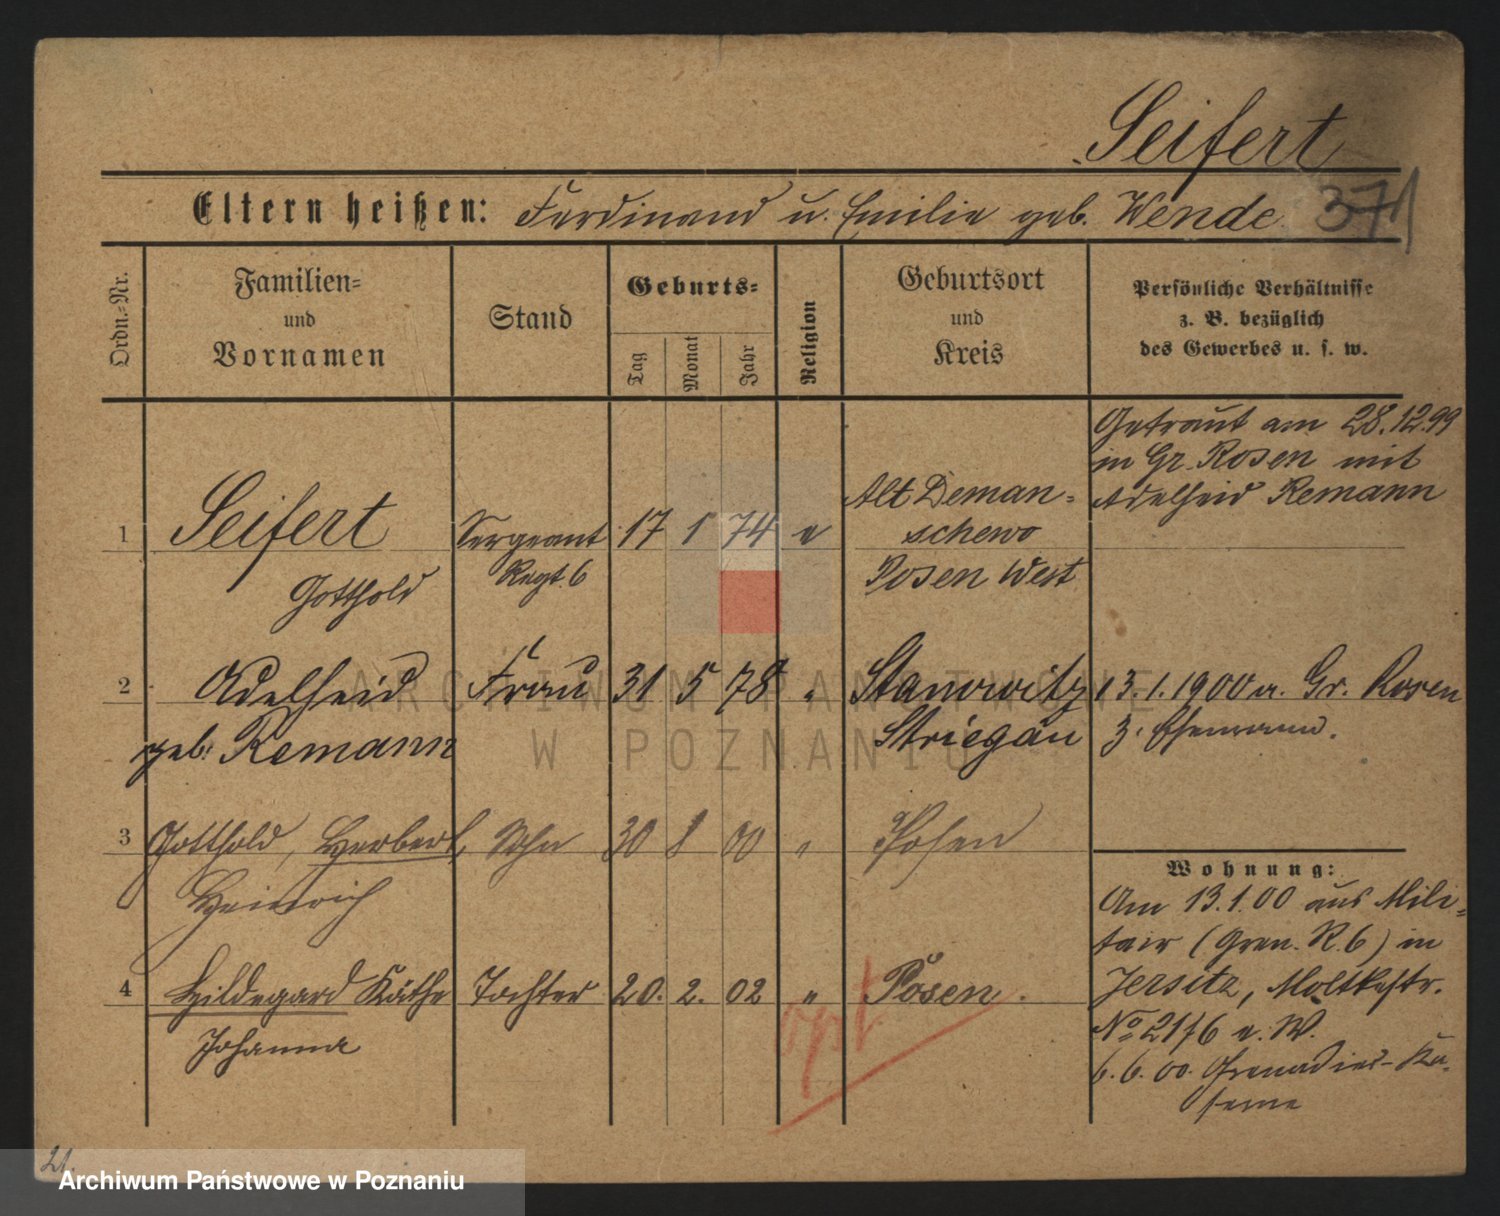 Seifert
371
Eltern heißen: Ferdinand u. Emilie geb. Wende
Ordn.-Nr.
Familien-
und
Vornamen
Stand
Geburts-
Tag
Monat
Jahr
Religion
Geburtsort
und
Kreis
Persönliche Verhältnisse
z. B. bezüglich
des Gewerbes u. s. w.
1
Seifert
Gotthold
Sergeant
Regt. 6
17 1 74 e
Alt Deman-
schewo
Posen West
Getraut am 28.12.99
in Gr. Rosen mit
Adelheid Remann
2
Adelheid
geb. Remann
Frau
31 5 78 "
Stanowitz
Striegau
13.1.1900 a. Gr. Rosen
z. Ehemann.
3
Gotthold, Herbert,
Heinrich
Sohn
30 8 00 "
Posen
4
Hildegard Käthe
Johanna
Tochter
20. 2. 02 "
Posen.
opt
Wohnung:
Am 13.1.00 aus Mili-
tair (Gren. R. 6) in
Jersitz, Moltkestr.
No 21/6 e. W.
6.6.00. Grenadier-Ka-
serne
21.
ARCHIWUM PAŃSTWOWE
W POZNANIU
Archiwum Państwowe w Poznaniu